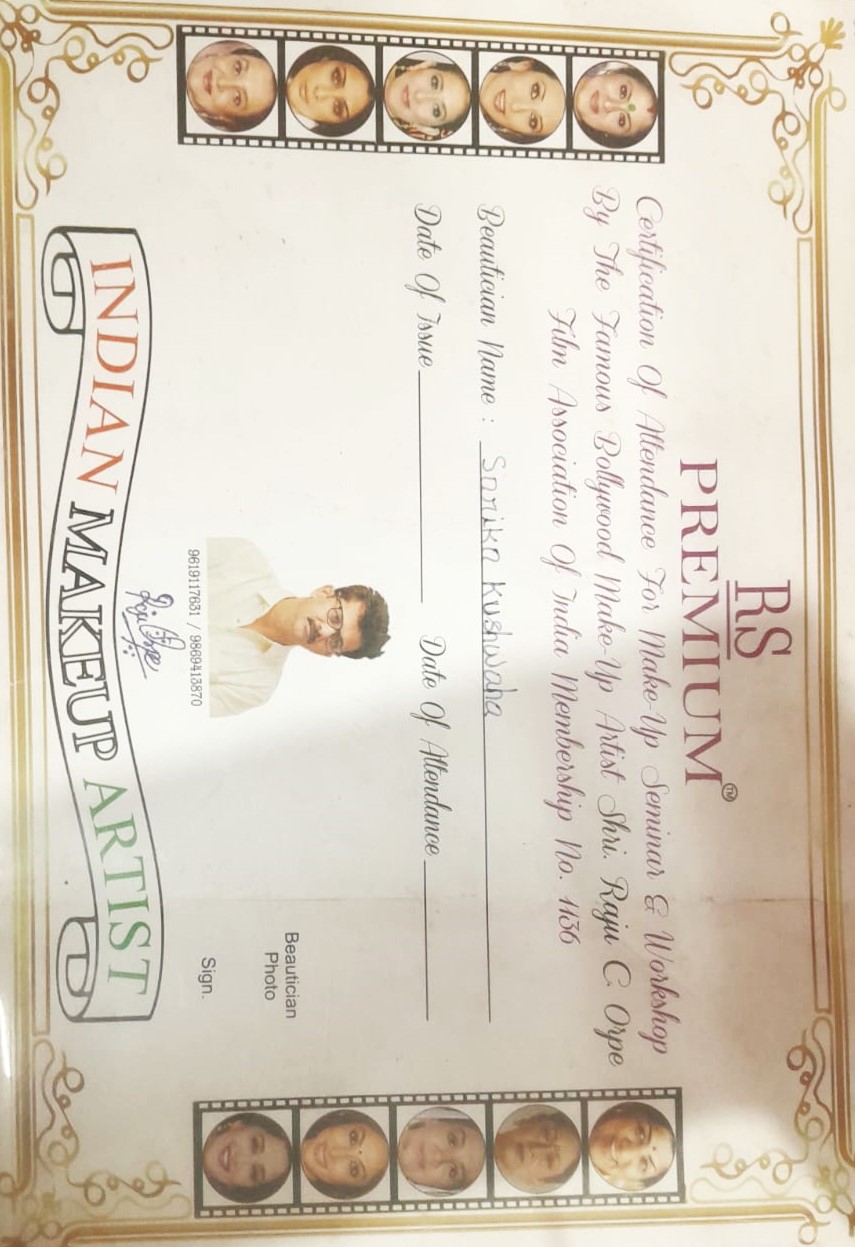 RS
PREMIUM™
Certification Of Attendance For Make-Up Seminar & Workshop
By The Famous Bollywood Make-Up Artist Shri. Raju C. Orpe
Film Association Of India Membership No. 1136
Beautician Name : Sarika Kushwaha
Date Of Issue Date Of Attendance
Beautician
Photo
Sign.
9619117631 / 9869413870
Raju Orpe
INDIAN MAKEUP ARTIST